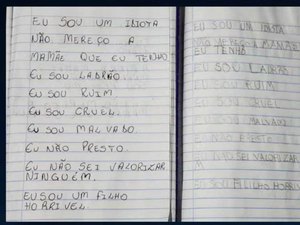 EU SOU UM IDIOTA
NÃO MEREÇO A
MAMÃE QUE EU TENHO
EU SOU LADRÃO.
EU SOU RUIM.
EU SOU CRUEL.
EU SOU MALVADO.
EU NÃO PRESTO.
EU NÃO SEI VALORIZAR
NINGUÉM.
EU SOU UM FILHO
HORRIVEL.
EU SOU UM IDIOTA
MAMÃE
EU TENHO
EU SOU LADRÃO
EU SOU RUIM
EU SOU CRUEL
EU SOU MALVADO
PRESTO
VALORIZAR